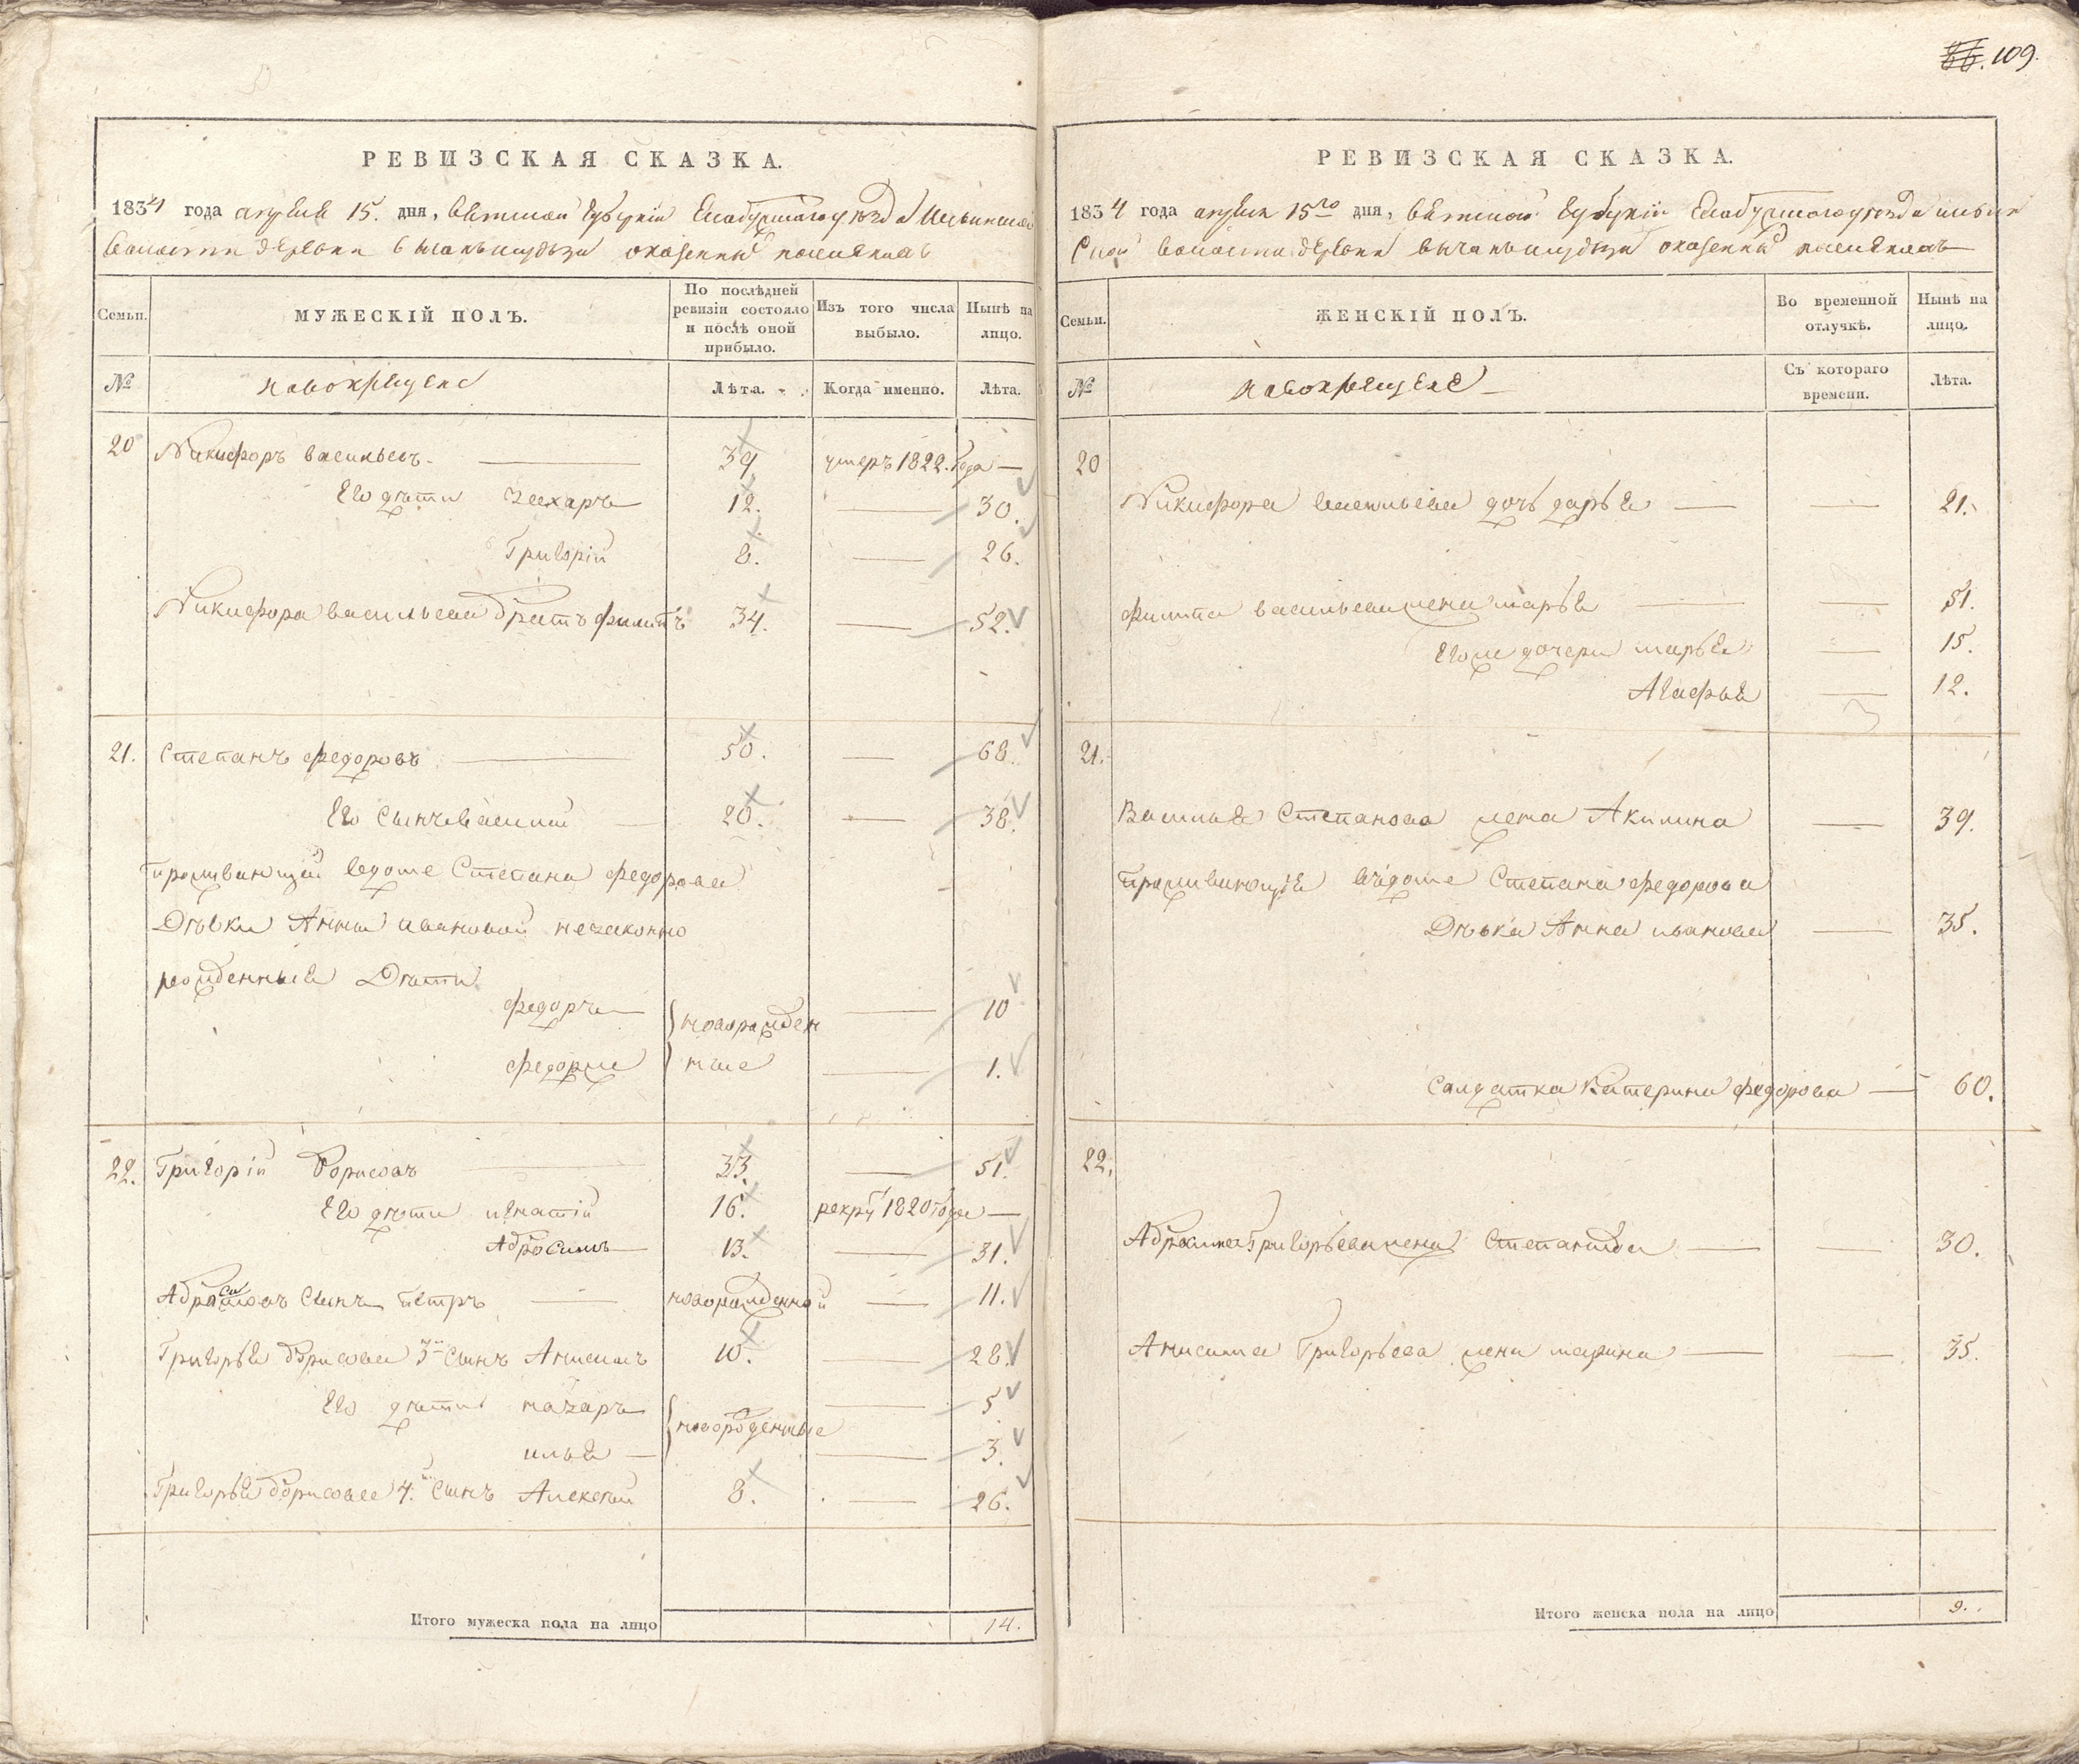 109.
РЕВИЗСКАЯ СКАЗКА.
1834 года апреля 15. дня, Вятской губернiи Елабужского уезда Ильинской
волости деревни оказенныхъ поселянахъ
Семьи.
МУЖЕСКІЙ ПОЛЪ.
По послѣдней ревизіи состояло и послѣ оной прибыло.
Изъ того числа выбыло.
Нынѣ на лицо.
№
новокрещене
Лѣта.
Когда именно.
Лѣта.
20 Никифоръ васильевъ 39 умеръ 1822. года
Его дѣти захаръ 12. 30.
Григорій 8. 26.
Никифора васильева братъ филипъ 34. 52.
21. Степанъ федоровъ 50. 68.
Его сынъ василий 20. 38.
проживающей вдоме Степана федорова
Дѣвки Анны ивановой незаконно
рожденныя Дѣти
федоръ новорожден 10
федорже ные 1.
22. Григорій Борисовъ 33. 51.
Его дѣти игнатій 16. рекру 1820 года
Абросимъ 13. 31.
Абросимовъ сынъ петръ новорожденной 11.
Григорья борисова 3й сынъ Анисимъ 10. 28.
Его дѣти назаръ новорожденные 5
илья 3.
Григорья борисова 4.й сынъ Алексей 8. 26.
Итого мужеска пола на лицо 14.
РЕВИЗСКАЯ СКАЗКА.
1834 года апреля 15го дня, Вятской губернiи Елабужского уезда ильин
ской волости деревни оказенныхъ поселянахъ
Семьи.
ЖЕНСКІЙ ПОЛЪ.
Во временной отлучкѣ.
Нынѣ на лицо.
№
новокрещене
Съ котораго времени.
Лѣта.
20
Никифора васильева дочь дарья 21.
филипа васильева жена марья 51.
Егоже дочери марья 15.
Агафья 12.
21.
Василья Степанова жена Акилина 39.
проживающія вдоме Степана федорова
Дѣвка Анна иванова 35.
Салдатка Катерина федорова 60.
22.
Абросима Григорьева жена Степанида 30.
Анисима Григорьева жена марина 35.
Итого женска пола на лицо 9.